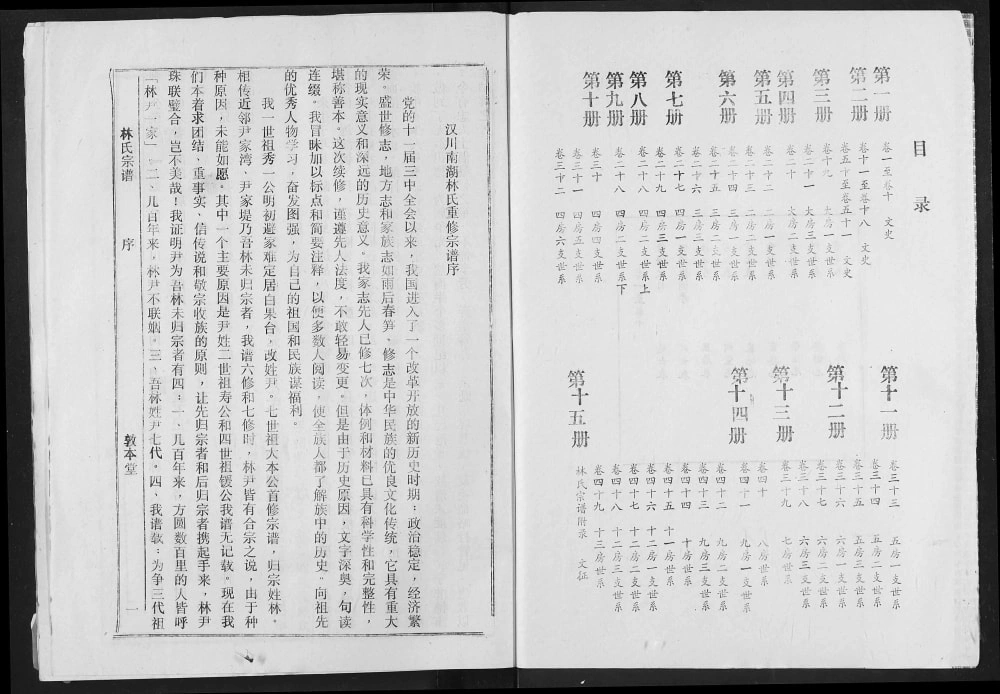 目录
第一册 卷一至卷十 文史
第二册 卷十一至卷十八 文史
卷五十至卷五十一 文史
第三册 卷十九 大房一支世系
第四册 卷二十 大房二支世系
第五册 卷二十二 二房一支世系
卷二十三 二房二支世系
第六册 卷二十四 三房一支世系
卷二十五 三房二支世系
卷二十六 三房三支世系
第七册 卷二十七 四房一支世系
卷二十九 四房三支世系
第八册 卷二十八 四房二支世系上
第九册 卷二十八 四房二支世系下
第十册 卷三十 四房四支世系
卷三十一 四房五支世系
卷三十二 四房六支世系
第十一册 卷三十三 五房一支世系
卷三十四 五房二支世系
卷三十五 五房三支世系
第十二册 卷三十六 六房一支世系
卷三十七 六房二支世系
卷三十八 六房三支世系
第十三册 卷三十九 七房世系
卷四十 八房世系
第十四册 卷四十一 九房一支世系
卷四十二 九房二支世系
卷四十三 九房三支世系
卷四十四 十房世系
卷四十五 十一房世系
卷四十六 十二房一支世系
卷四十七 十二房二支世系
卷四十八 十二房三支世系
卷四十九 十三房世系
第十五册 林氏宗谱附录 文征
汉川南湖林氏重修宗谱序
党的十一届三中全会以来，我国进入了一个改革开放的新历史时期：政治稳定，经济繁
荣。盛世修志，地方志和家族志如雨后春笋。修志是中华民族的优良文化传统，它具有重大
的现实意义和深远的历史意义。我家志先人已修七次，体例和材料已具有科学性和完整性，
堪称善本。这次续修，谨遵先人法度，不敢轻易变更。但是由于历史原因，文字深奥，句读
连缀。我冒昧加以标点和简要注释，以便多数人阅读，使全族人都了解族中的历史。向祖先
的优秀人物学习，奋发图强，为自己的祖国和民族谋福利。
我一世祖秀一公明初避家难定居白果台，改姓尹。七世祖大本公首修宗谱，归宗姓林。
相传近邻尹家湾、尹家堤乃吾林未归宗者，我谱六修和七修时，林尹皆有合宗之说，由于种
种原因，未能如愿。其中一个主要原因是尹姓二世祖寿公和四世祖锾公我谱无记载。现在我
们本着求团结、重事实、信传说和敬宗收族的原则，让先归宗者和后归宗者携起手来，林尹
珠联璧合，岂不美哉！我证明尹为吾林未归宗者有四：一、几百年来，方圆数百里的人皆呼
「林尹一家」。二、几百年来，林尹不联姻。三、吾林姓尹七代。四、我谱载：为争三代祖
林氏宗谱 序 敦本堂 一